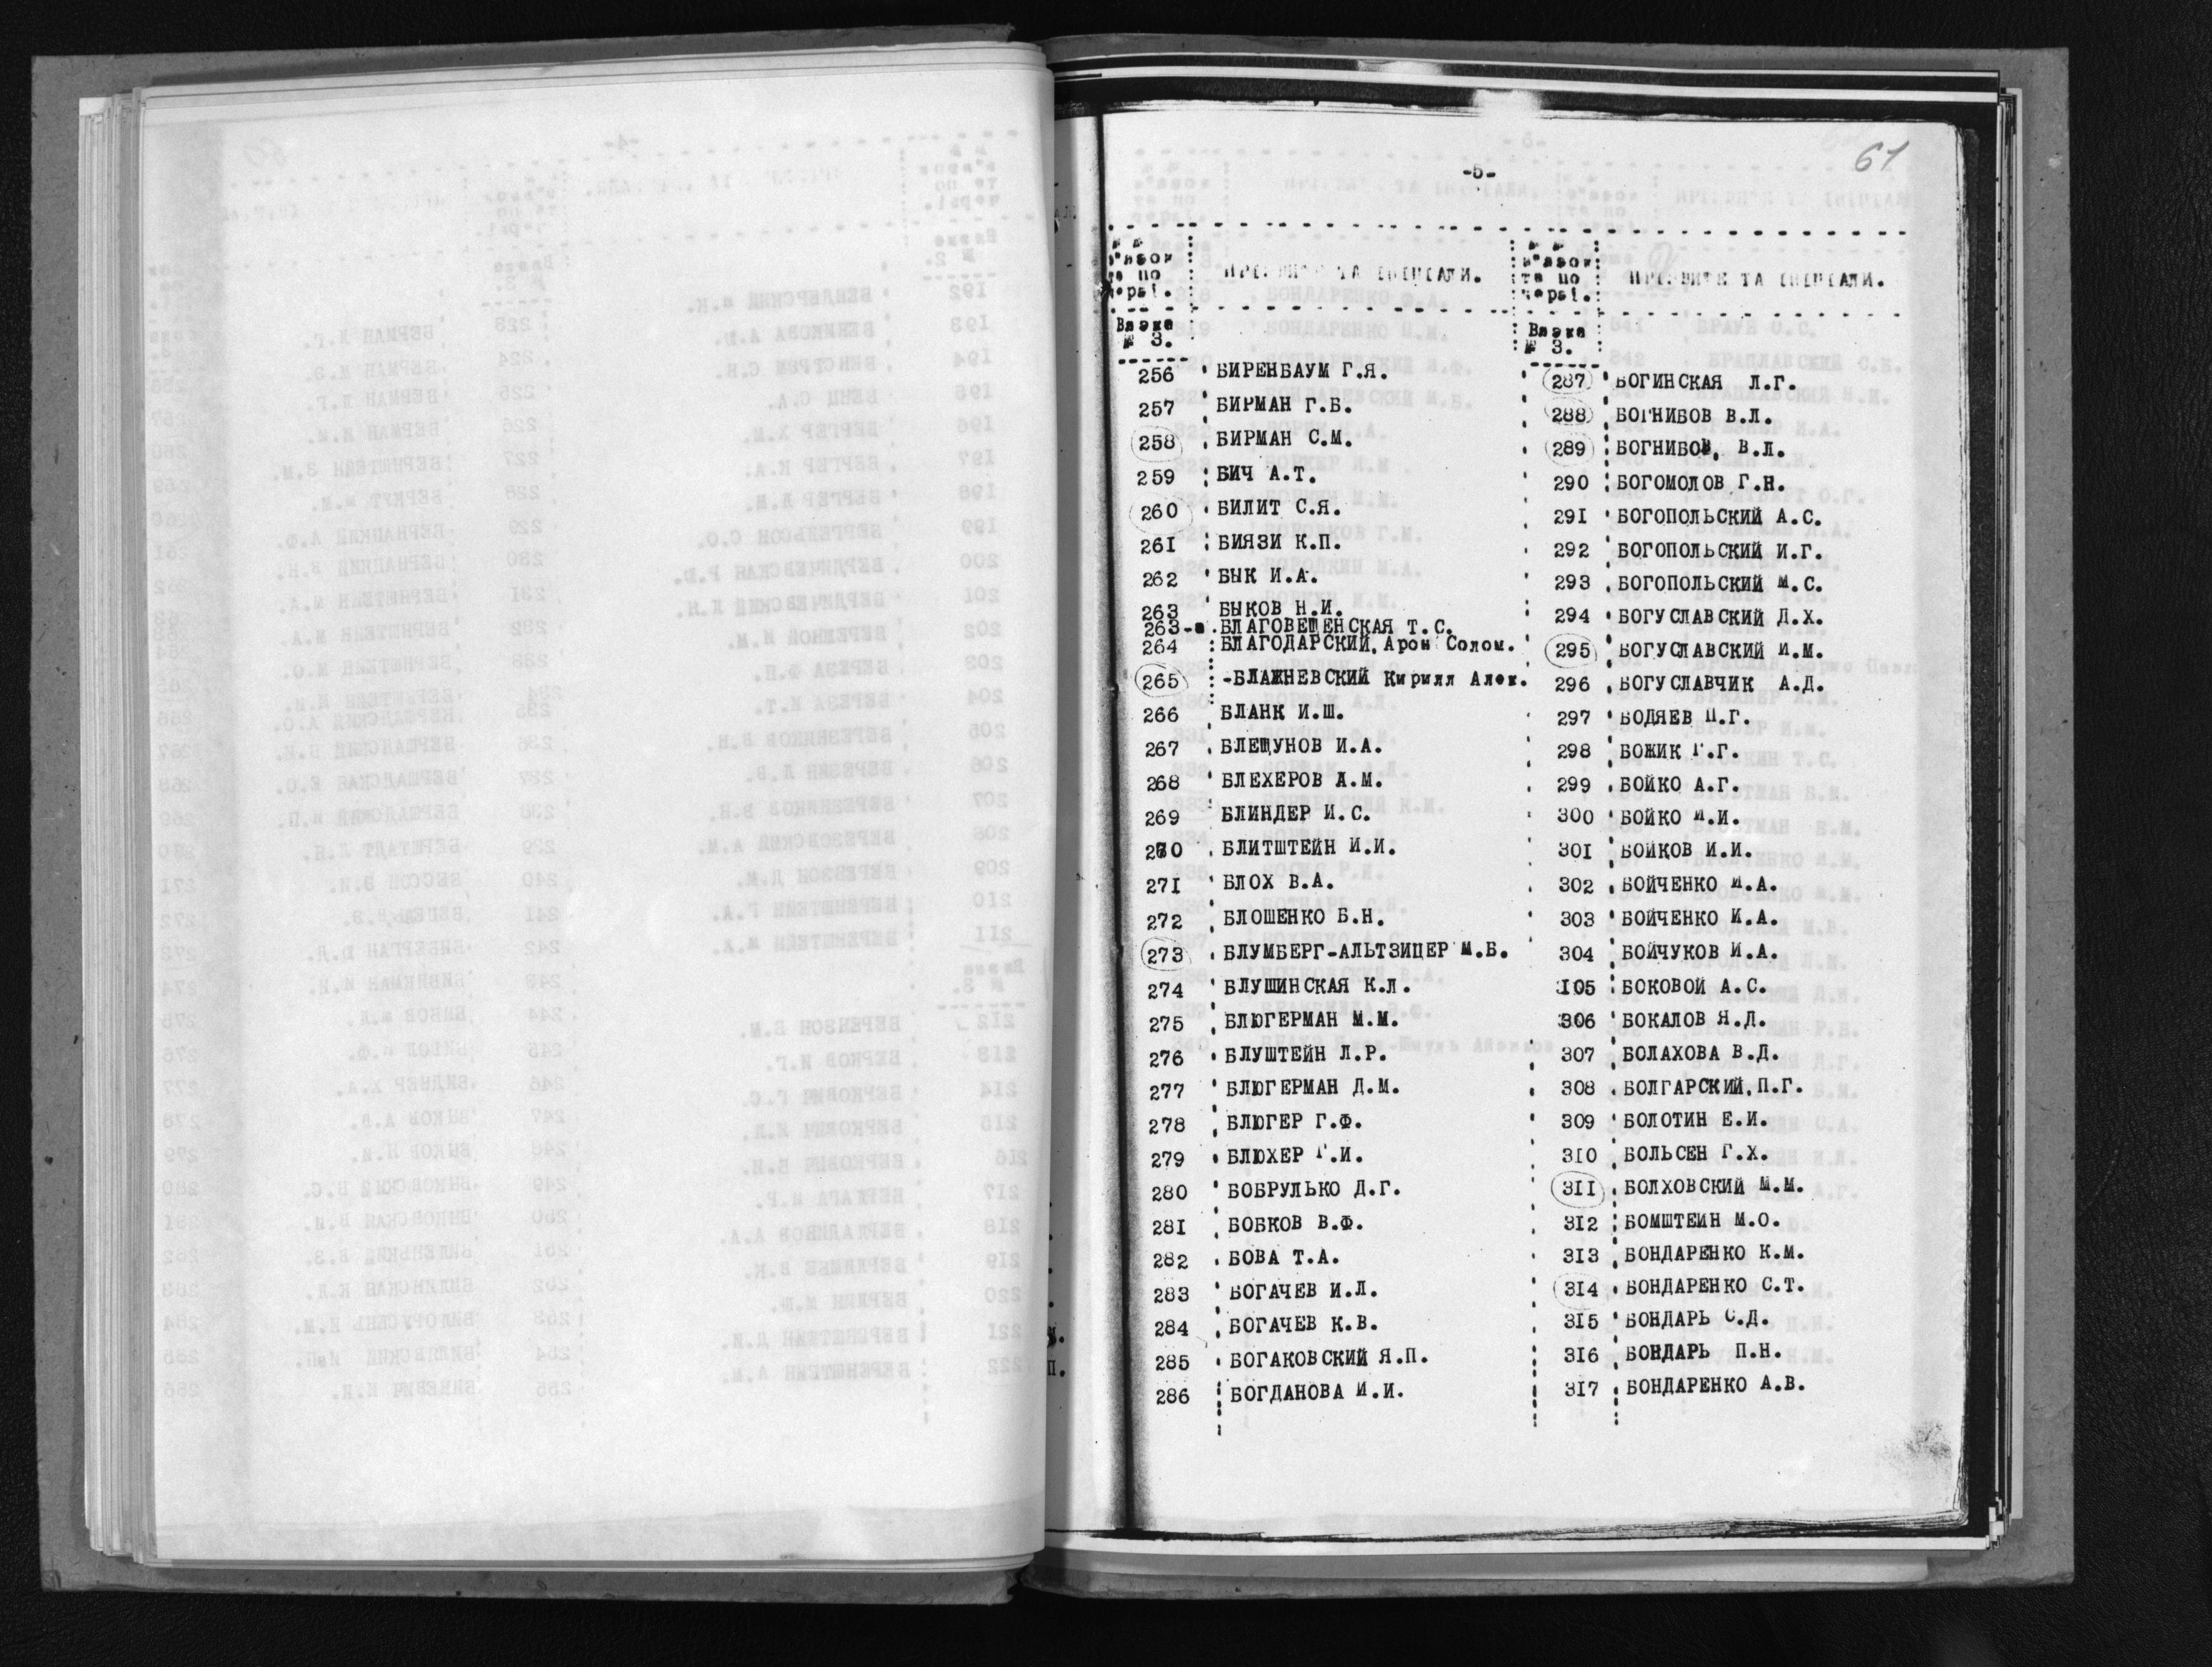 61
-5-
№ №
в"язок
та по
черзі.
ПРІЗВИЩЕ ТА ІНІЦІАЛИ.
№ №
в"язок
та по
черзі.
ПРІЗВИЩЕ ТА ІНІЦІАЛИ.
Вязка
№ 3.
Вязка
№ 3.
256 БИРЕНБАУМ Г.Я.
257 БИРМАН Г.Б.
258 БИРМАН С.М.
259 БИЧ А.Т.
260 БИЛИТ С.Я.
261 БИЯЗИ К.П.
262 БЫК И.А.
263 БЫКОВ Н.И.
263-а БЛАГОВЕЩЕНСКАЯ Т.С.
264 БЛАГОДАРСКИЙ, Арон Солом.
265 -БЛАЖНЕВСКИЙ Кирилл Алек.
266 БЛАНК И.Ш.
267 БЛЕЩУНОВ И.А.
268 БЛЕХЕРОВ А.М.
269 БЛИНДЕР И.С.
270 БЛИТШТЕЙН И.И.
271 БЛОХ В.А.
272 БЛОШЕНКО Б.Н.
273 БЛУМБЕРГ-АЛЬТЗИЦЕР М.Б.
274 БЛУШИНСКАЯ К.Л.
275 БЛЮГЕРМАН М.М.
276 БЛУШТЕЙН Л.Р.
277 БЛЮГЕРМАН Д.М.
278 БЛЮГЕР Г.Ф.
279 БЛЮХЕР Г.И.
280 БОБРУЛЬКО Д.Г.
281 БОБКОВ В.Ф.
282 БОВА Т.А.
283 БОГАЧЕВ И.Л.
284 БОГАЧЕВ К.В.
285 БОГАКОВСКИЙ Я.П.
286 БОГДАНОВА И.И.
287 БОГИНСКАЯ Л.Г.
288 БОГНИБОВ В.Л.
289 БОГНИБОВ, В.Л.
290 БОГОМОЛОВ Г.Н.
291 БОГОПОЛЬСКИЙ А.С.
292 БОГОПОЛЬСКИЙ И.Г.
293 БОГОПОЛЬСКИЙ М.С.
294 БОГУСЛАВСКИЙ Д.Х.
295 БОГУСЛАВСКИЙ И.М.
296 БОГУСЛАВЧИК А.Д.
297 БОДЯЕВ П.Г.
298 БОЖИК Г.Г.
299 БОЙКО А.Г.
300 БОЙКО И.И.
301 БОЙКОВ И.И.
302 БОЙЧЕНКО И.А.
303 БОЙЧЕНКО И.А.
304 БОЙЧУКОВ И.А.
305 БОКОВОЙ А.С.
306 БОКАЛОВ Я.Д.
307 БОЛАХОВА В.Д.
308 БОЛГАРСКИЙ, П.Г.
309 БОЛОТИН Е.И.
310 БОЛЬСЕН Г.Х.
311 БОЛХОВСКИЙ М.М.
312 БОМШТЕИН М.О.
313 БОНДАРЕНКО К.М.
314 БОНДАРЕНКО С.Т.
315 БОНДАРЬ С.Д.
316 БОНДАРЬ П.Н.
317 БОНДАРЕНКО А.В.